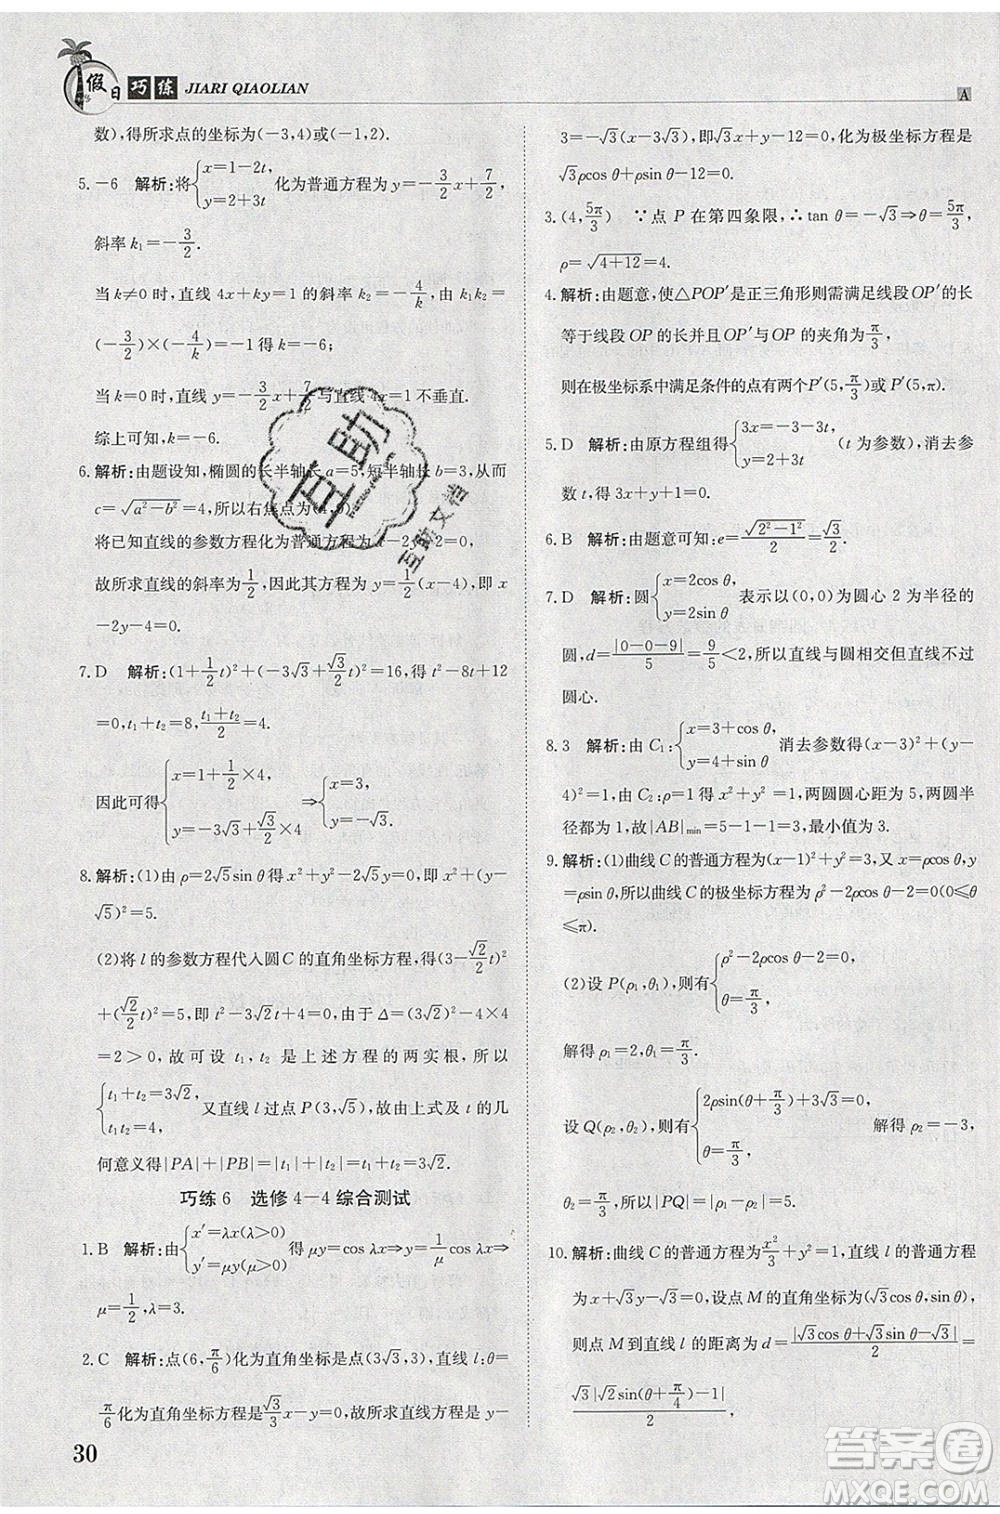 假日巧练 JIARI QIAOLIAN
A
数),得所求点的坐标为(-3,4)或(-1,2).
5.-6 解析:将{x=1-2t, y=2+3t 化为普通方程为y=-3/2x+7/2,
斜率k₁=-3/2.
当k≠0时,直线4x+ky=1的斜率k₂=-4/k,由k₁k₂=
(-3/2)×(-4/k)=-1得k=-6;
当k=0时,直线y=-3/2x+7/2与直线4x=1不垂直.
综上可知,k=-6.
6.解析:由题设知,椭圆的长半轴长a=5,短半轴长b=3,从而
c=√(a²-b²)=4,所以右焦点为(4,0).
将已知直线的参数方程化为普通方程x-2y+2=0,
故所求直线的斜率为1/2,因此其方程为y=1/2(x-4),即x
-2y-4=0.
7.D 解析:(1+1/2t)²+(-3√3+√3/2t)²=16,得t²-8t+12
=0,t₁+t₂=8,(t₁+t₂)/2=4.
因此可得{x=1+1/2×4, y=-3√3+√3/2×4⇒{x=3, y=-√3.
8.解析:(1)由ρ=2√5sinθ得x²+y²-2√5y=0,即x²+(y-
√5)²=5.
(2)将l的参数方程代入圆C的直角坐标方程,得(3-√2/2t)²
+(√2/2t)²=5,即t²-3√2t+4=0,由于Δ=(3√2)²-4×4
=2>0,故可设t₁,t₂是上述方程的两实根,所以
{t₁+t₂=3√2, t₁t₂=4, 又直线l过点P(3,√5),故由上式及t的几
何意义得|PA|+|PB|=|t₁|+|t₂|=t₁+t₂=3√2.
巧练6 选修4-4综合测试
1.B 解析:由{x′=λx(λ>0) y′=μy(μ>0)得μy=cosλx⇒y=1/μcosλx⇒
μ=1/2,λ=3.
2.C 解析:点(6,π/6)化为直角坐标是点(3√3,3),直线l:θ=
π/6化为直角坐标方程是y=√3/3x.故所求直线方程为y-
30
3=√3/3(x-3√3),即√3x+y-12=0,化为极坐标方程是
√3ρcosθ+ρsinθ-12=0.
3.(4,5π/3) ∵点P在第四象限,∴tanθ=-√3⇒θ=5π/3.
ρ=√(4+12)=4.
4.解析:由题意,使△POP′是正三角形则需满足线段OP′的长
等于线段OP的长并且OP′与OP的夹角为π/3,
则在极坐标系中满足条件的点有两个P′(5,π/3)或P′(5,π).
5.D 解析:由原方程组得{3x=-3-3t, y=2+3t (t为参数),消去参
数t,得3x+y-1=0.
6.B 解析:由题意可知:e=√(2²-1²)/2=√3/2.
7.D 解析:圆{x=2cosθ y=2sinθ 表示以(0,0)为圆心2为半径的
圆,d=|0-0-9|/5=9/5<2,所以直线与圆相交但直线不过
圆心.
8.3 解析:由C₁:{x=3+cosθ, y=4+sinθ 消去参数得(x-3)²+(y-
4)²=1,由C₂:ρ=1得x²+y²=1,两圆圆心距为5,两圆半
径都为1,故|AB|min=5-1-1=3,最小值为3.
9.解析:(1)曲线C的普通方程为(x-1)²+y²=3,又x=ρcosθ,y=
ρsinθ,所以曲线C的极坐标方程为ρ²-2ρcosθ-2=0(0≤θ
≤π).
(2)设P(ρ₁,θ₁),则有{ρ²-2ρcosθ-2=0, θ=π/3,
解得ρ₁=2,θ₁=π/3.
设Q(ρ₂,θ₂),则有{2ρsin(θ+π/3)+3√3=0, θ=π/3, 解得ρ₂=-3,
θ₂=π/3,所以|PQ|=|ρ₁-ρ₂|=5.
10.解析:曲线C的普通方程为x²/3+y²=1,直线l的普通方程
为x+√3y-√3=0,设点M的直角坐标为(√3cosθ,sinθ),
则点M到直线l的距离为d=|√3cosθ+√3sinθ-√3|/2=
√3|√2sin(θ+π/4)-1|/2,
互助
互助文档
答案卷